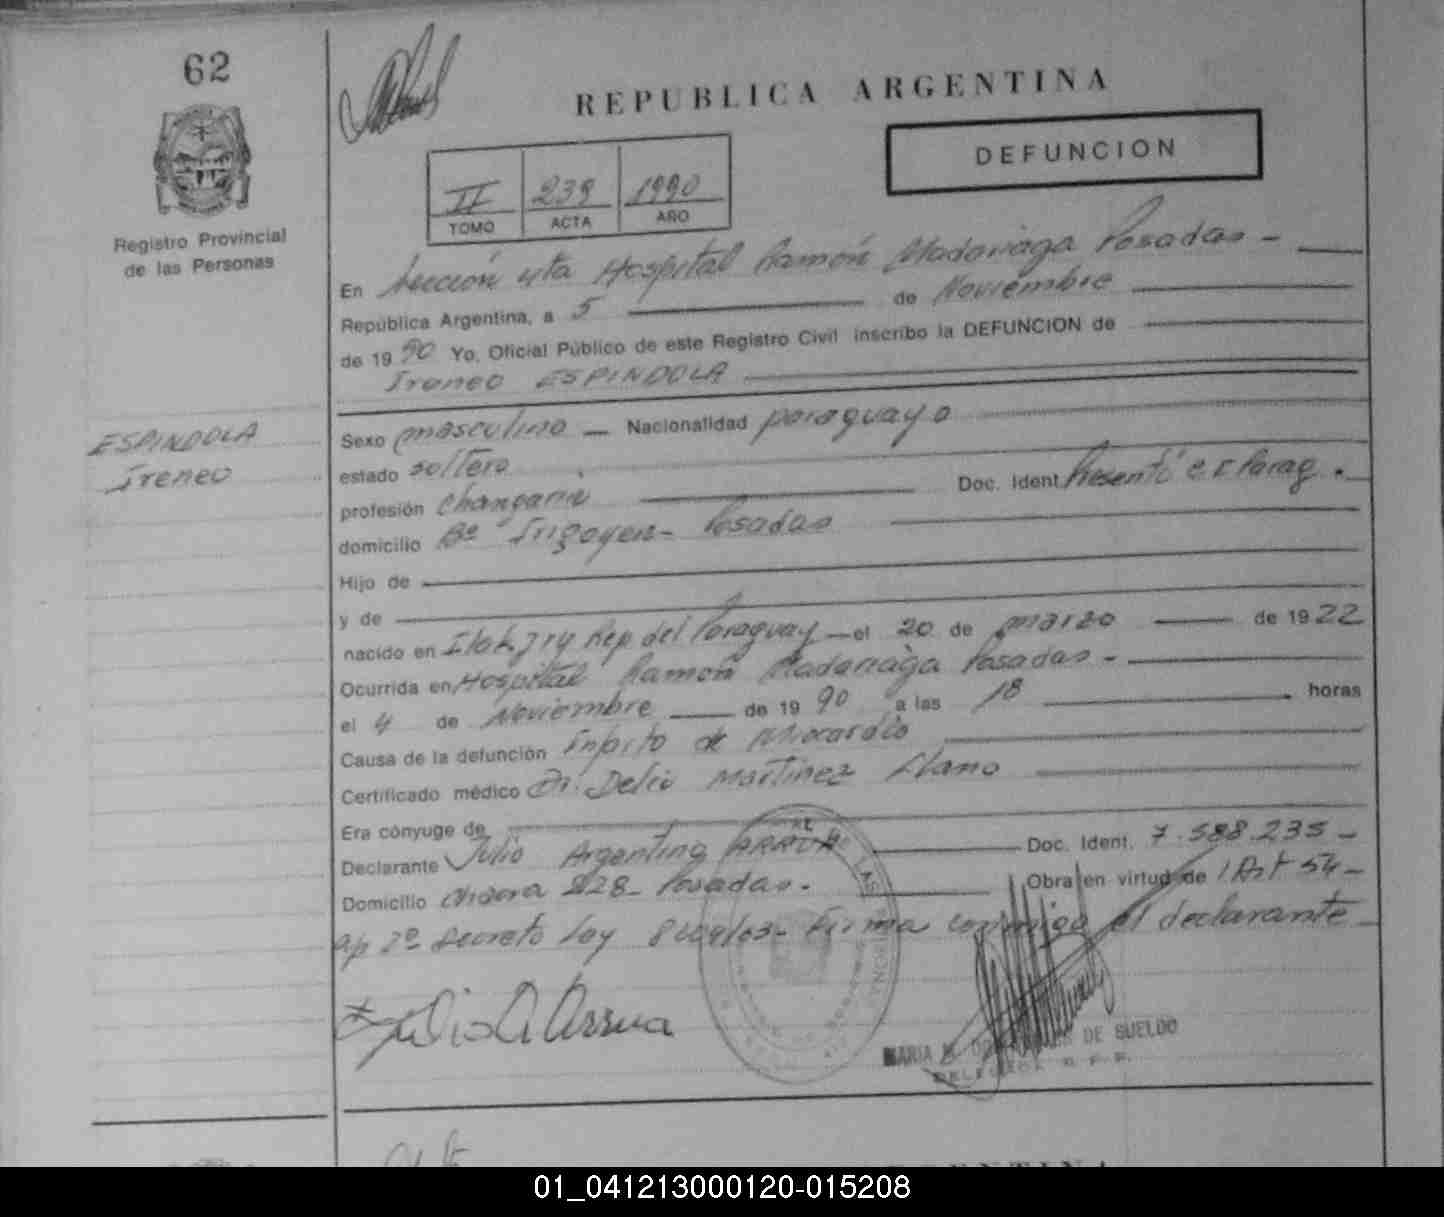 62
REPUBLICA ARGENTINA
DEFUNCION
II 239 1990
TOMO ACTA AÑO
Registro Provincial
de las Personas
En Sección 4ta Hospital Ramón Madariaga Posadas -
República Argentina, a 5 de Noviembre
de 1990 Yo, Oficial Público de este Registro Civil inscribo la DEFUNCION de
Ireneo ESPINDOLA
ESPINDOLA
Ireneo
Sexo masculino - Nacionalidad paraguayo
estado soltero
profesión changarín Doc. Ident. Presentó C.I. Parag.
domicilio Bº Irigoyen - Posadas
Hijo de
y de
nacido en Rep. del Paraguay - el 20 de marzo de 1922
Ocurrida en Hospital Ramón Madariaga Posadas -
el 4 de Noviembre de 1990 a las 18 horas
Causa de la defunción Infarto de Miocardio
Certificado médico Dr. Delio Martinez Llano
Era cónyuge de
Declarante Julio Argentino ARRUA Doc. Ident. 7.588.235 -
Domicilio 228 - Posadas - Obra en virtud de Art 54 -
ap 2º Decreto Ley - Firma conmigo el declarante
Julio A Arrua
MARIA DE SUELDO
01_041213000120-015208